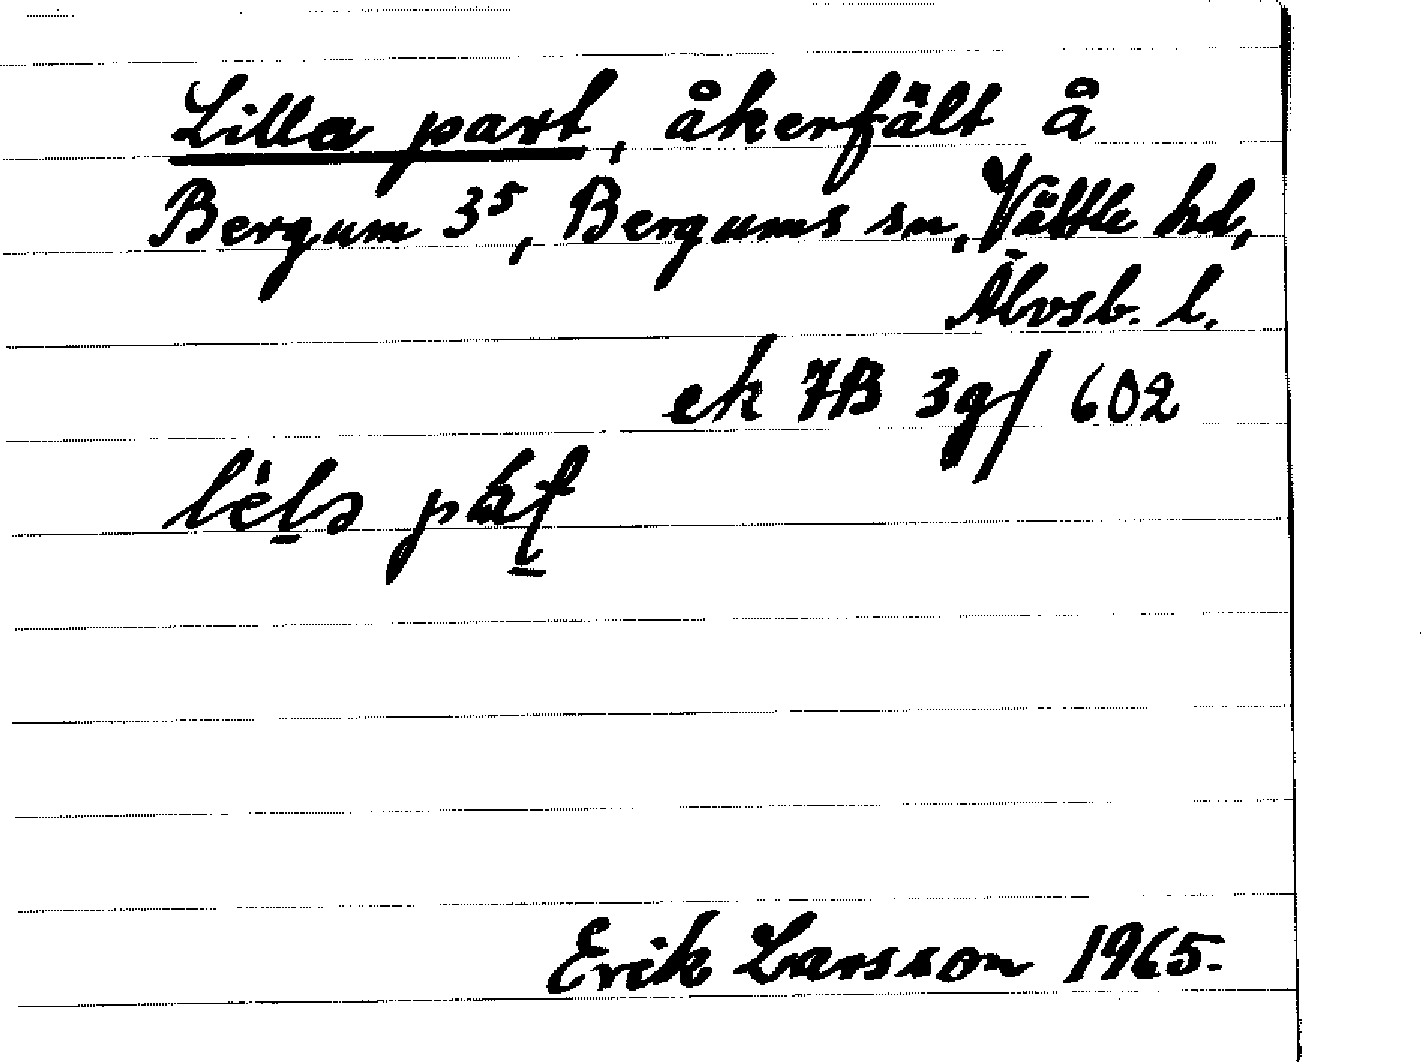 Lilla part, åkerfält å
Bergum 3⁵, Bergums sn, Vättle hd,
Älvsb. l.
ek 7B 3g/ 602
Erik Larsson 1965.